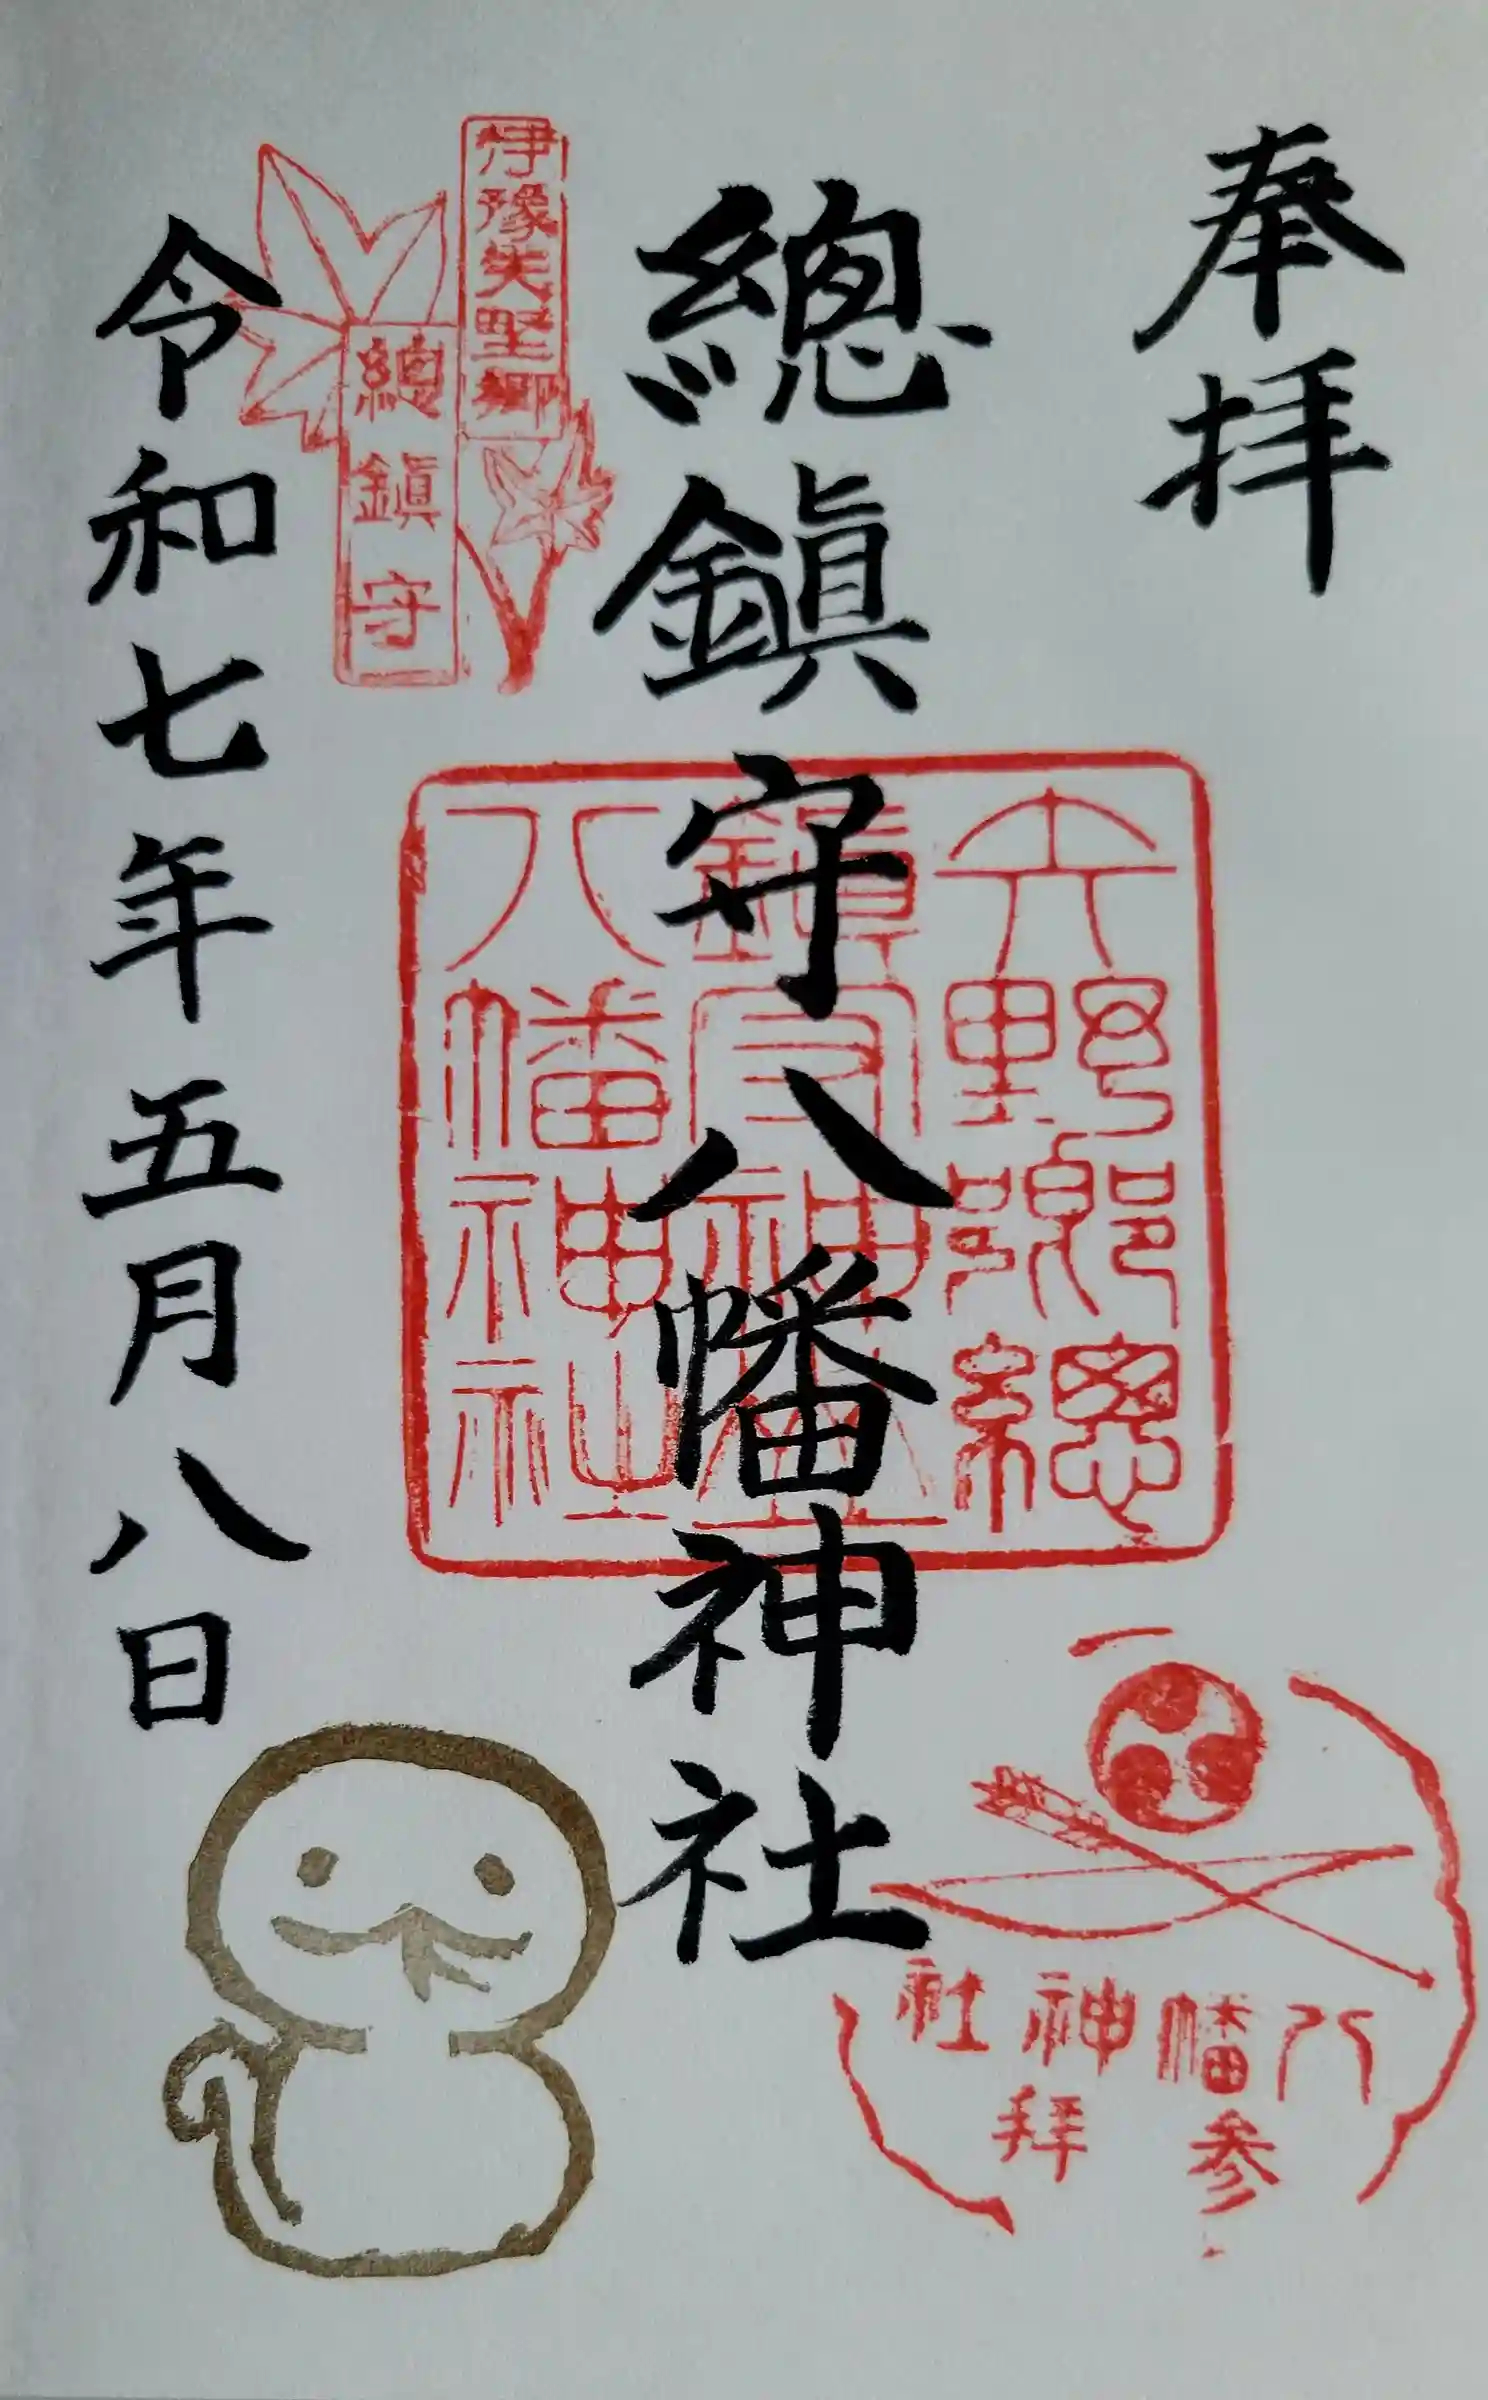 奉拝
總鎮守八幡神社
伊豫矢野郷
總鎮守
令和七年五月八日
矢野郷總
鎮守神山
八幡神社
八幡神社
参拜